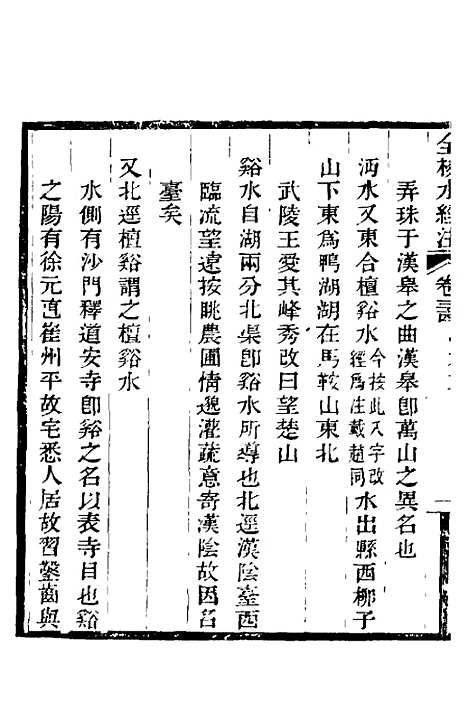 全校水經注 卷
弄珠于漢臯之曲漢臯即萬山之異名也
沔水又東合檀谿水今按此八字改經爲注戴趙同水出縣西柳子
山下東爲鴨湖湖在馬鞍山東北
武陵王愛其峰秀改曰望楚山
谿水自湖兩分北渠卽谿水所導也北逕漢陰臺西
臨流望遠按眺農圃情邈灌蔬意寄漢陰故因名
臺矣
又北逕檀谿謂之檀谿水
水側有沙門釋道安寺卽谿之名以表寺目也谿
之陽有徐元直崔州平故宅悉人居故習鑿齒與